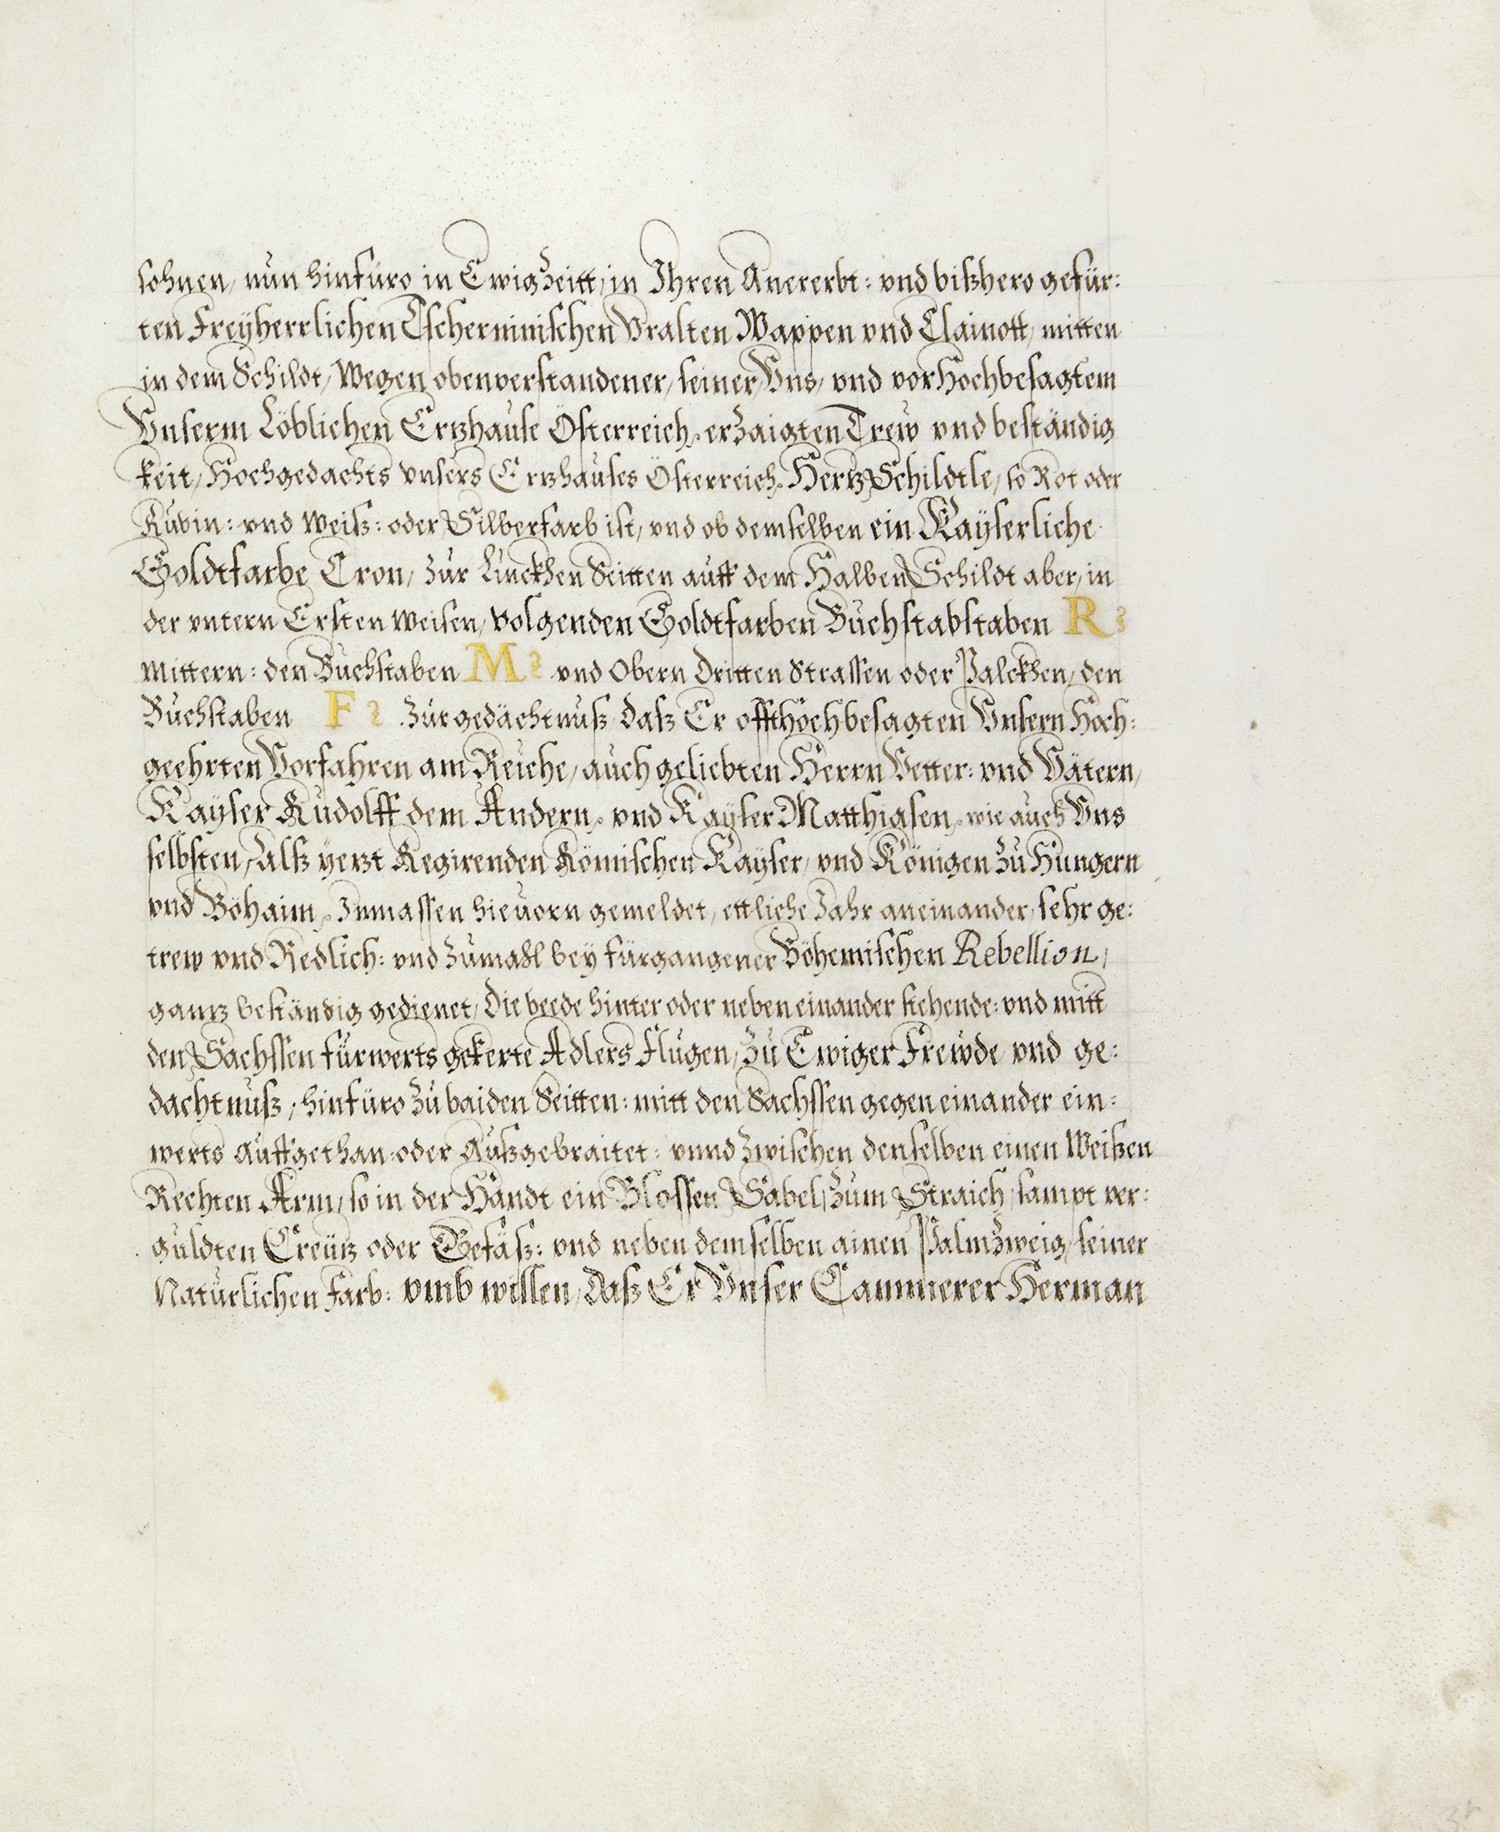 sohnen, nun hinfüro in EwigZeitt, in Ihren Anererbt: vnd bißhero gefür:
ten Freÿherrlichen Tscherninischen Vralten Wappen vnd Clainott, mitten
in dem Schildt, Wegen obenverstandener, seiner, Vns, vnd vorHochbesagtem
Vnserm Löblichen Ertzhause Österreich, erZaigten Trew vnd beständig
keit, Hochgedachts vnsers Ertzhauses Österreich, HertzSchildtle, so Rot oder
Rubin: vnd Weiß: oder Silberfarb ist, vnd ob demselben ein Kaÿserliche
Goldtfarbe Cron, Zur Linckhen Seitten auff dem Halben Schildt aber, in
der vntern Ersten Weisen, volgenden Goldtfarben Buchstabstaben R
Mittern: den Buchstaben M vnd Obern Dritten Strassen oder Palckhen, den
Buchstaben F Zur gedächtnuß daß Er offthochbesagten Vnsern Hoch:
geehrten Vorfahren am Reiche, auch geliebten Herrn Vetter: vnd Vätern,
Kaÿser Rudolff dem Andern, vnd Kaÿser Matthiasen, wie auch Vns
selbsten, Alß ÿetzt Regirenden Römischen Kaÿser, vnd Königen Zu Hungern
vnd Böhaim, Inmassen hieuorn gemeldet, ettliche Jahr aneinander, sehr ge:
trew vnd Redlich: vnd Zumahl beÿ fürgangener Böhemischen Rebellion,
gantz beständig gedienet, Die beede hinter oder neben einander stehende: vnd mitt
den Sachssen fürwerts gekerte Adlers Flügen, Zu Ewiger Frewde vnd ge:
dachtnuß, hinfüro Zu baiden Seitten: mitt den Sachssen gegen einander ein:
werts auffgethan oder Außgebraitet: vnnd Zwischen denselben einen Weißen
Rechten Arm, so in der Handt ein Blossen Säbel, Zum Straich, sampt ver:
guldten Creütz oder Gefäß: vnd neben demselben ainen PalmZweig, seiner
Naturlichen Farb: vmb willen, daß Er Vnser Cammerer Herman
3r